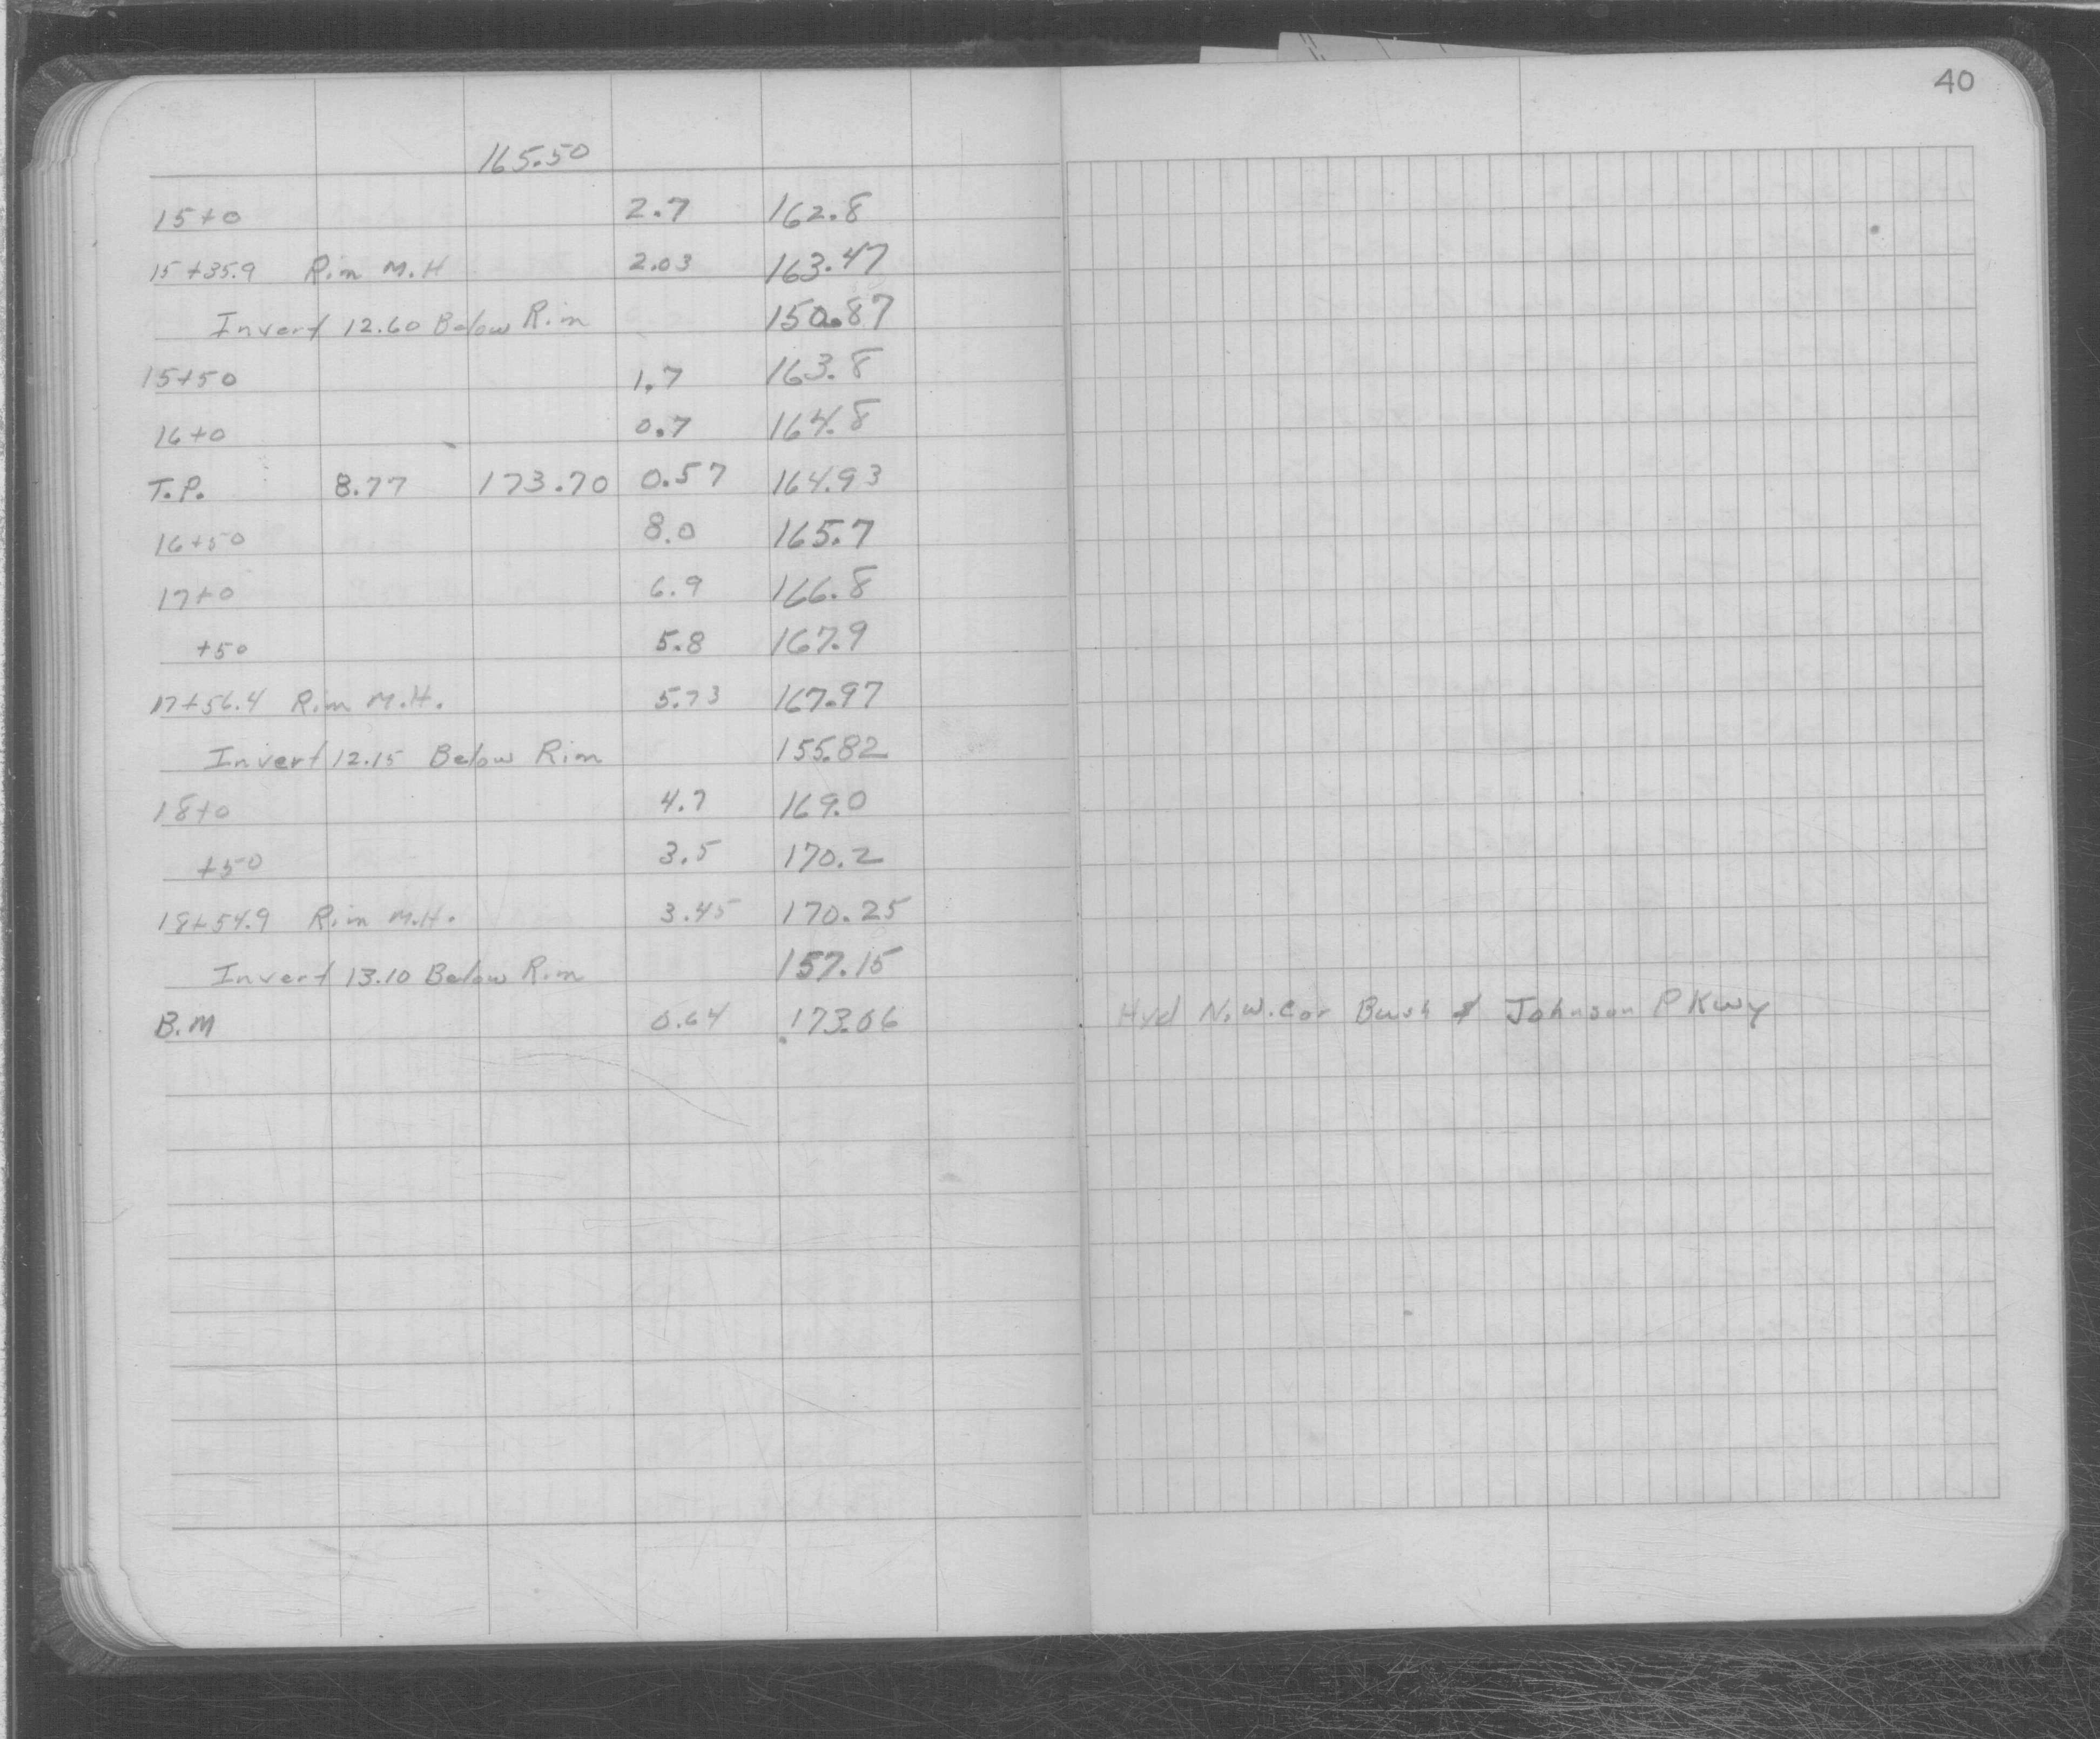 40
165.50
15+0 2.7 162.8
15+35.9 Rim M.H 2.03 163.47
Invert 12.60 Below Rim 150.87
15+50 1.7 163.8
16+0 0.7 164.8
T.P. 8.77 173.70 0.57 164.93
16+50 8.0 165.7
17+0 6.9 166.8
+50 5.8 167.9
17+56.4 Rim M.H. 5.73 167.97
Invert 12.15 Below Rim 155.82
18+0 4.7 169.0
+50 3.5 170.2
18+54.9 Rim M.H. 3.45 170.25
Invert 13.10 Below Rim 157.15
B.M 0.64 173.06 Hyd N.W. Cor Bush & Johnson PKwy